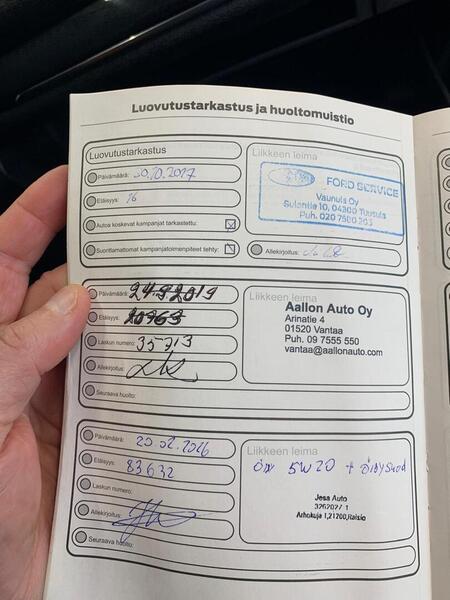 Luovutustarkastus ja huoltomuistio
Luovutustarkastus
Päivämäärä: 30.10.2017
Etäisyys: 16
Autoa koskevat kampanjat tarkastettu:
Suorittamattomat kampanjatoimenpiteet tehty:
Liikkeen leima
Ford
FORD SERVICE
Vaunuls Oy
Sulantie 10, 04300 Tuusula
Puh. 020 7500 303
Allekirjoitus:
Päivämäärä: 24.9.2019
Etäisyys: 20763
Laskun numero: 35713
Allekirjoitus:
Seuraava huolto:
Liikkeen leima
Aallon Auto Oy
Arinatie 4
01520 Vantaa
Puh. 09 7555 550
vantaa@aallonauto.com
Päivämäärä: 20.02.2026
Etäisyys: 83632
Laskun numero:
Allekirjoitus:
Seuraava huolto:
Liikkeen leima
Öljy 5W20 + Öljysuod
Jess Auto
3262027-1
Arhokuja 1,21200,Raisio